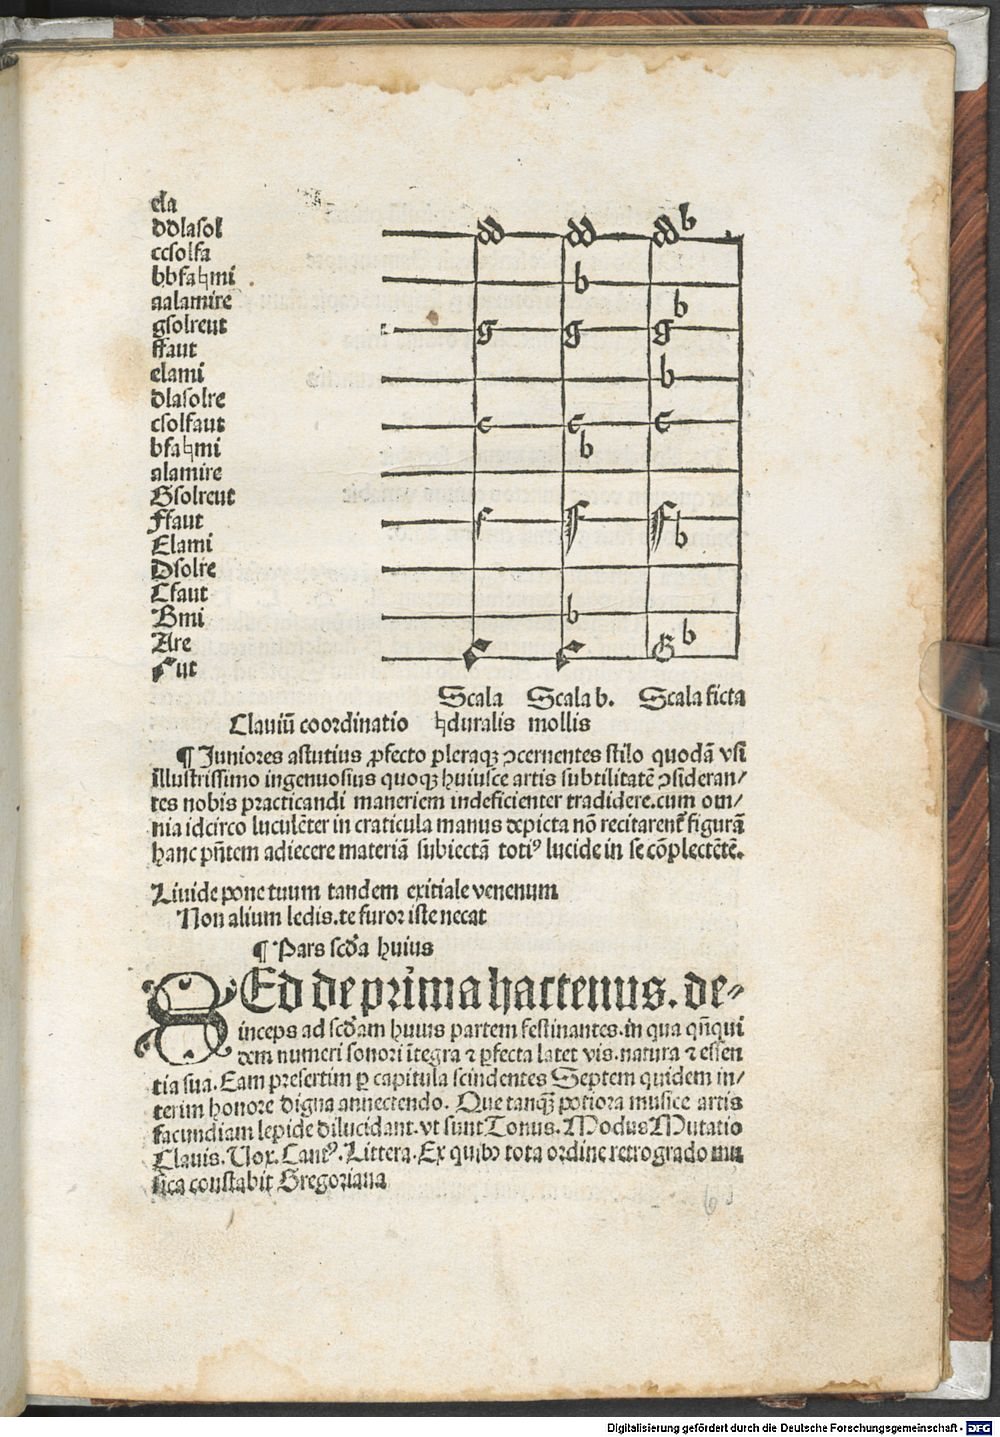 ela
ddlasol
ccsolfa
bbfa♮mi
aalamire
gsolreut
ffaut
elami
dlasolre
csolfaut
bfa♮mi
alamire
Gsolreut
Ffaut
Elami
Dsolre
Cfaut
Bmi
Are
Γut
dd dd dd b
b
b
g g g
b
c c c
b
f ff ff b
b
Γ Γ G b
Scala Scala b. Scala ficta
Clauiū coordinatio ♮duralis mollis
¶ Juniores astutius ꝓfecto pleraqꝫ ↄcernentes stilo quodā vsi
illustrissimo ingenuosius quoqꝫ huiusce artis subtilitatē ↄsideran/
tes nobis practicandi maneriem indeficienter tradidere.cum om/
nia idcirco luculēter in craticula manus depicta nō recitarent᷑ figurā
hanc pn̄tem adiecere materiā subiectā totiꝰ lucide in se cōplectētē.
Liuide pone tuum tandem exitiale venenum
Non alium ledis.te furor iste necat
¶ Pars scd̄a huius
SEd de prīma hactenus. de⸗
inceps ad scd̄am huius partem festinantes.in qua qn̄qui
dem numeri sonori ītegra ⁊ ꝑfecta latet vis.natura ⁊ essen
tia sua. Eam presertim ꝑ capitula scindentes Septem quidem in/
terim honore digna annectendo. Que tanqꝫ potiora musice artis
facundiam lepide dilucidant.vt sunt Tonus. Modus Mutatio
Clauis. Uox. Cantꝰ. Littera. Ex quibꝫ tota ordine retrogrado mu
sica constabit Gregoriana
Digitalisierung gefördert durch die Deutsche Forschungsgemeinschaft - DFG